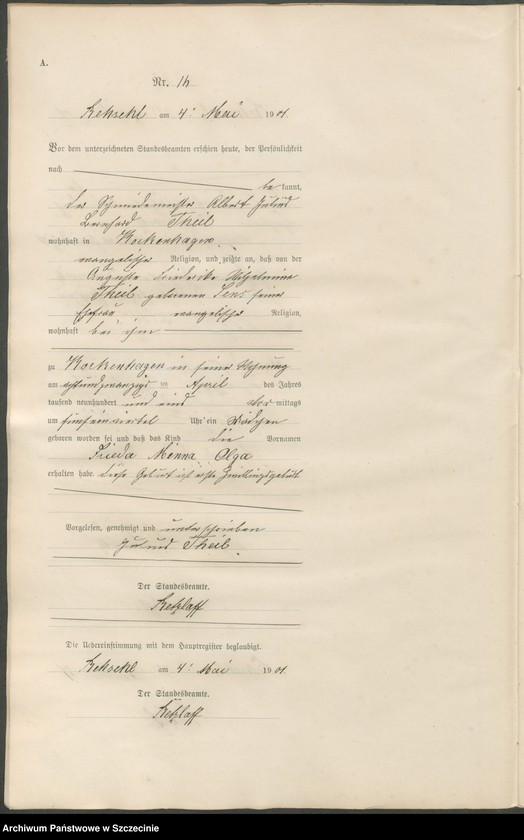 A.
Nr. 16
am 4. Mai 1901.
Vor dem unterzeichneten Standesbeamten erschien heute, der Persönlichkeit
nach
be kannt,
der Schmiedemeister Albert Julius
Bernhard Theil
wohnhaft in
evangelischer Religion, und zeigte an, daß von der
Auguste Friederike Wilhelmine
Theil geborenen seiner
Ehefrau evangelischer Religion,
wohnhaft bei ihm
zu in seiner Wohnung
am achtundzwanzigsten April des Jahres
tausend neunhundert und eins vormittags
um Uhr ein Mädchen
geboren worden sei und daß das Kind die Vornamen
Frieda Minna Olga
erhalten habe. Diese Geburt ist erste Zwillingsgeburt
Vorgelesen, genehmigt und unterschrieben
Julius Theil.
Der Standesbeamte.
Ketzlaff
Die Uebereinstimmung mit dem Hauptregister beglaubigt.
am 4. Mai 1901.
Der Standesbeamte.
Ketzlaff
Archiwum Państwowe w Szczecinie